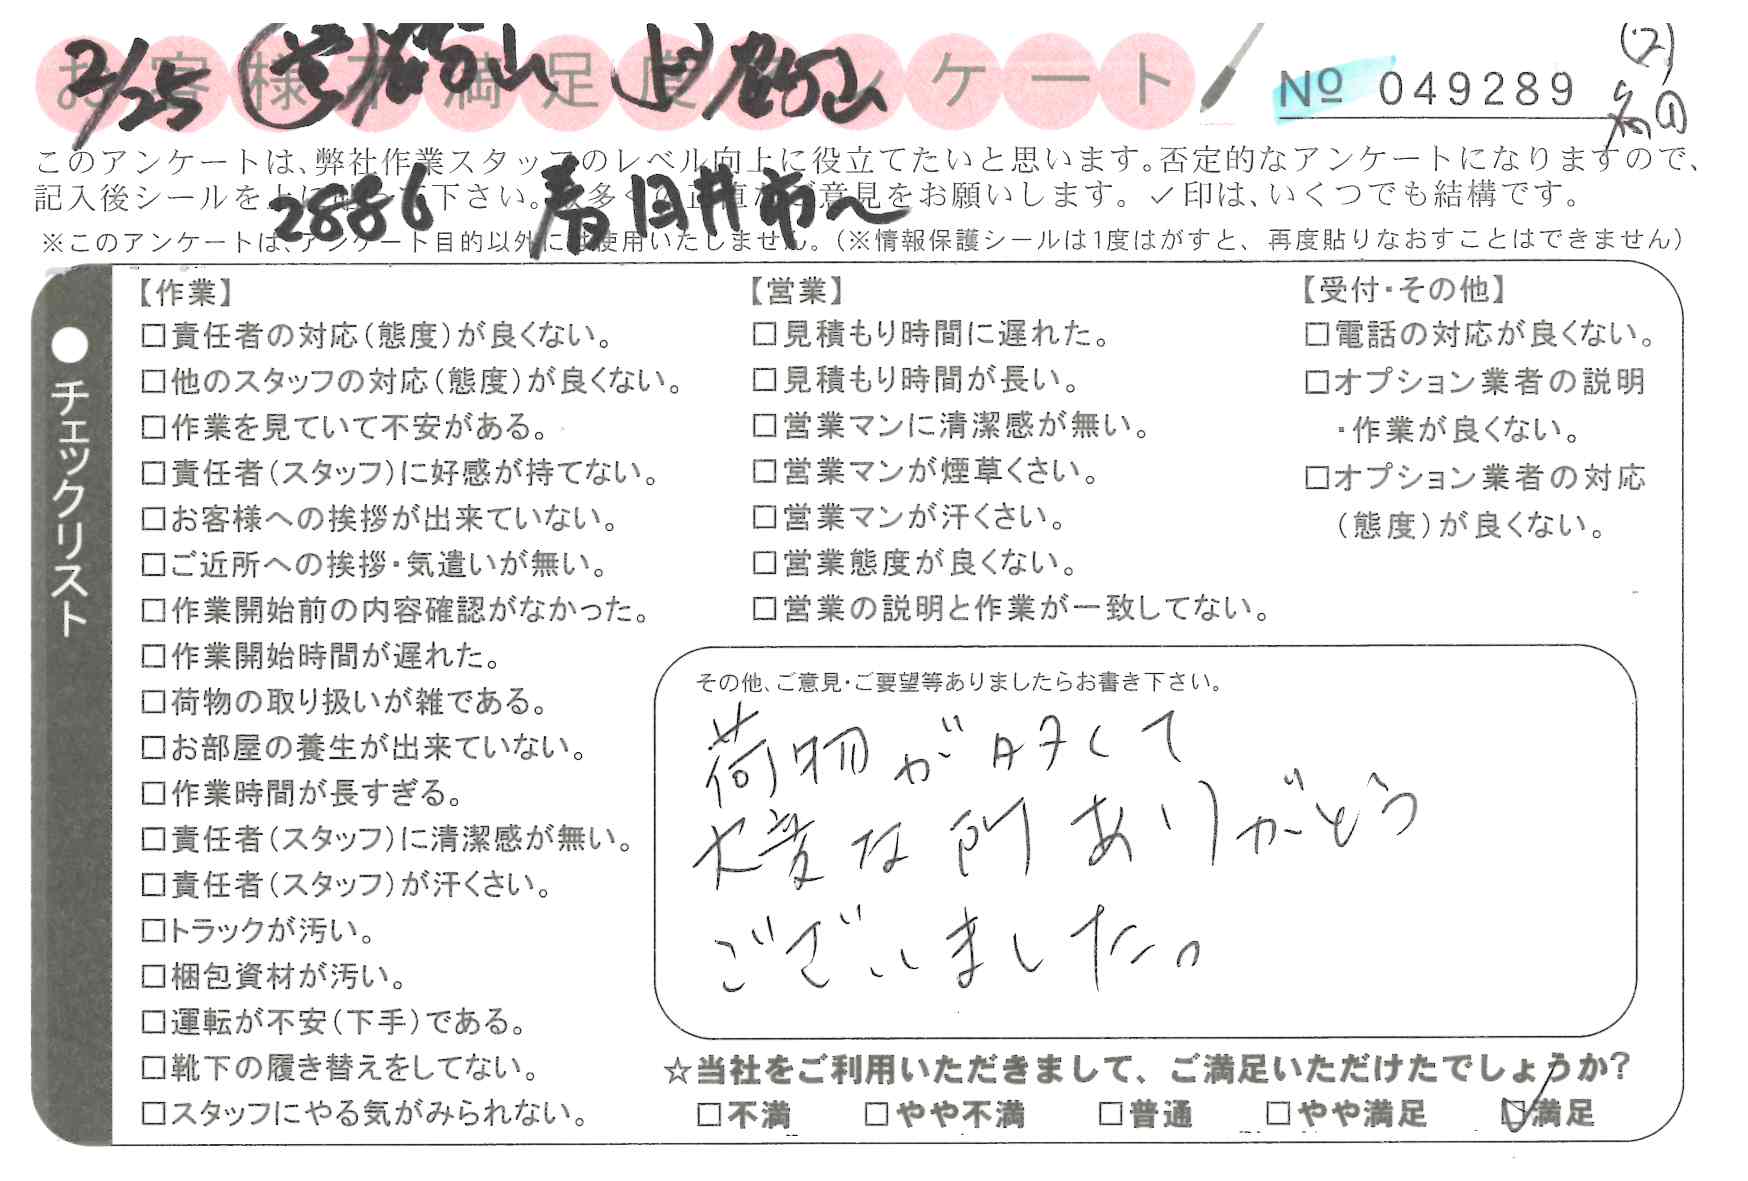 2/25
お客様不満足度アンケート
No 049289
(2)
このアンケートは、弊社作業スタッフのレベル向上に役立てたいと思います。否定的なアンケートになりますので、
記入後シールを上に 下さい。 多く 正直な 意見をお願いします。✓印は、いくつでも結構です。
2886 春日井市へ
※このアンケートは、アンケート目的以外には使用いたしません。(※情報保護シールは1度はがすと、再度貼りなおすことはできません)
●チェックリスト
【作業】
□責任者の対応(態度)が良くない。
□他のスタッフの対応(態度)が良くない。
□作業を見ていて不安がある。
□責任者(スタッフ)に好感が持てない。
□お客様への挨拶が出来ていない。
□ご近所への挨拶・気遣いが無い。
□作業開始前の内容確認がなかった。
□作業開始時間が遅れた。
□荷物の取り扱いが雑である。
□お部屋の養生が出来ていない。
□作業時間が長すぎる。
□責任者(スタッフ)に清潔感が無い。
□責任者(スタッフ)が汗くさい。
□トラックが汚い。
□梱包資材が汚い。
□運転が不安(下手)である。
□靴下の履き替えをしてない。
□スタッフにやる気がみられない。
【営業】
□見積もり時間に遅れた。
□見積もり時間が長い。
□営業マンに清潔感が無い。
□営業マンが煙草くさい。
□営業マンが汗くさい。
□営業態度が良くない。
□営業の説明と作業が一致してない。
【受付・その他】
□電話の対応が良くない。
□オプション業者の説明
・作業が良くない。
□オプション業者の対応
(態度)が良くない。
その他、ご意見・ご要望等ありましたらお書き下さい。
荷物が多くて
大変な所ありがとう
ございました。
☆当社をご利用いただきまして、ご満足いただけたでしょうか?
□不満 □やや不満 □普通 □やや満足 ☑満足